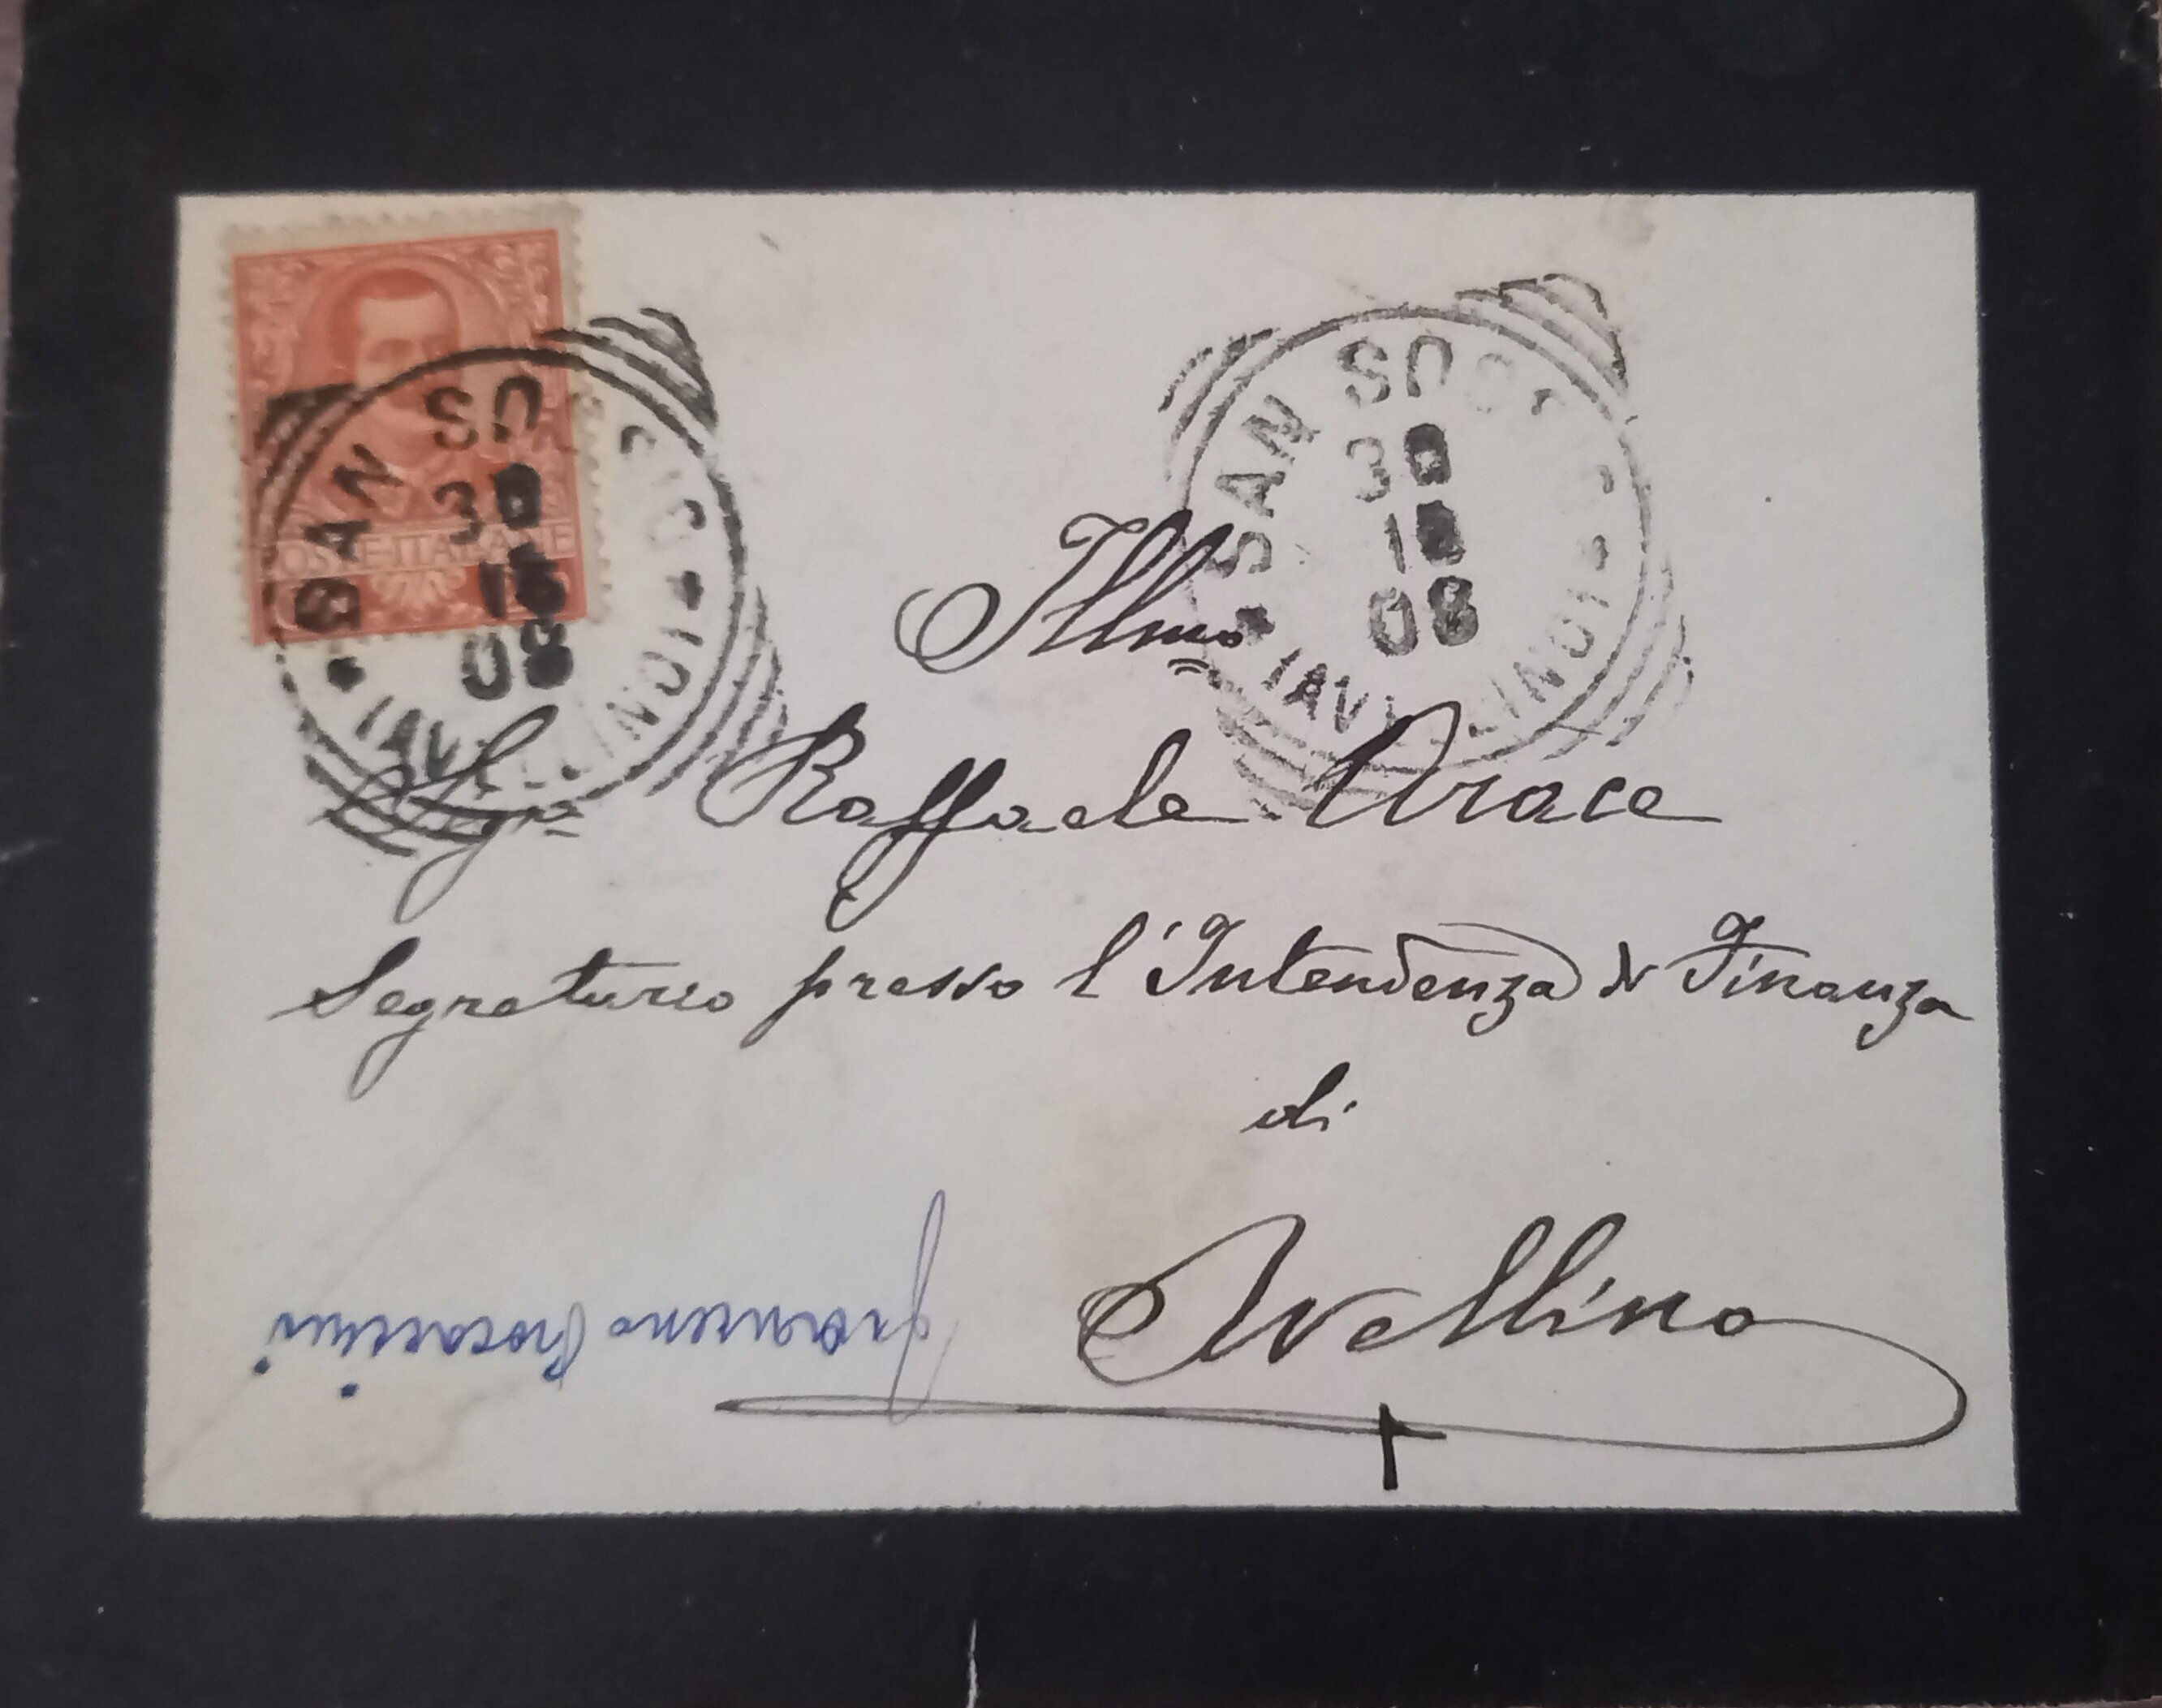 POSTE ITALIANE
SAN SO
30
08
(AVELLINO)
SAN SO
30
08
(AVELLINO)
Illmo
Sigr Raffaele Arace
Segretario presso l'Intendenza di Finanza
di
Avellino
Procaccini